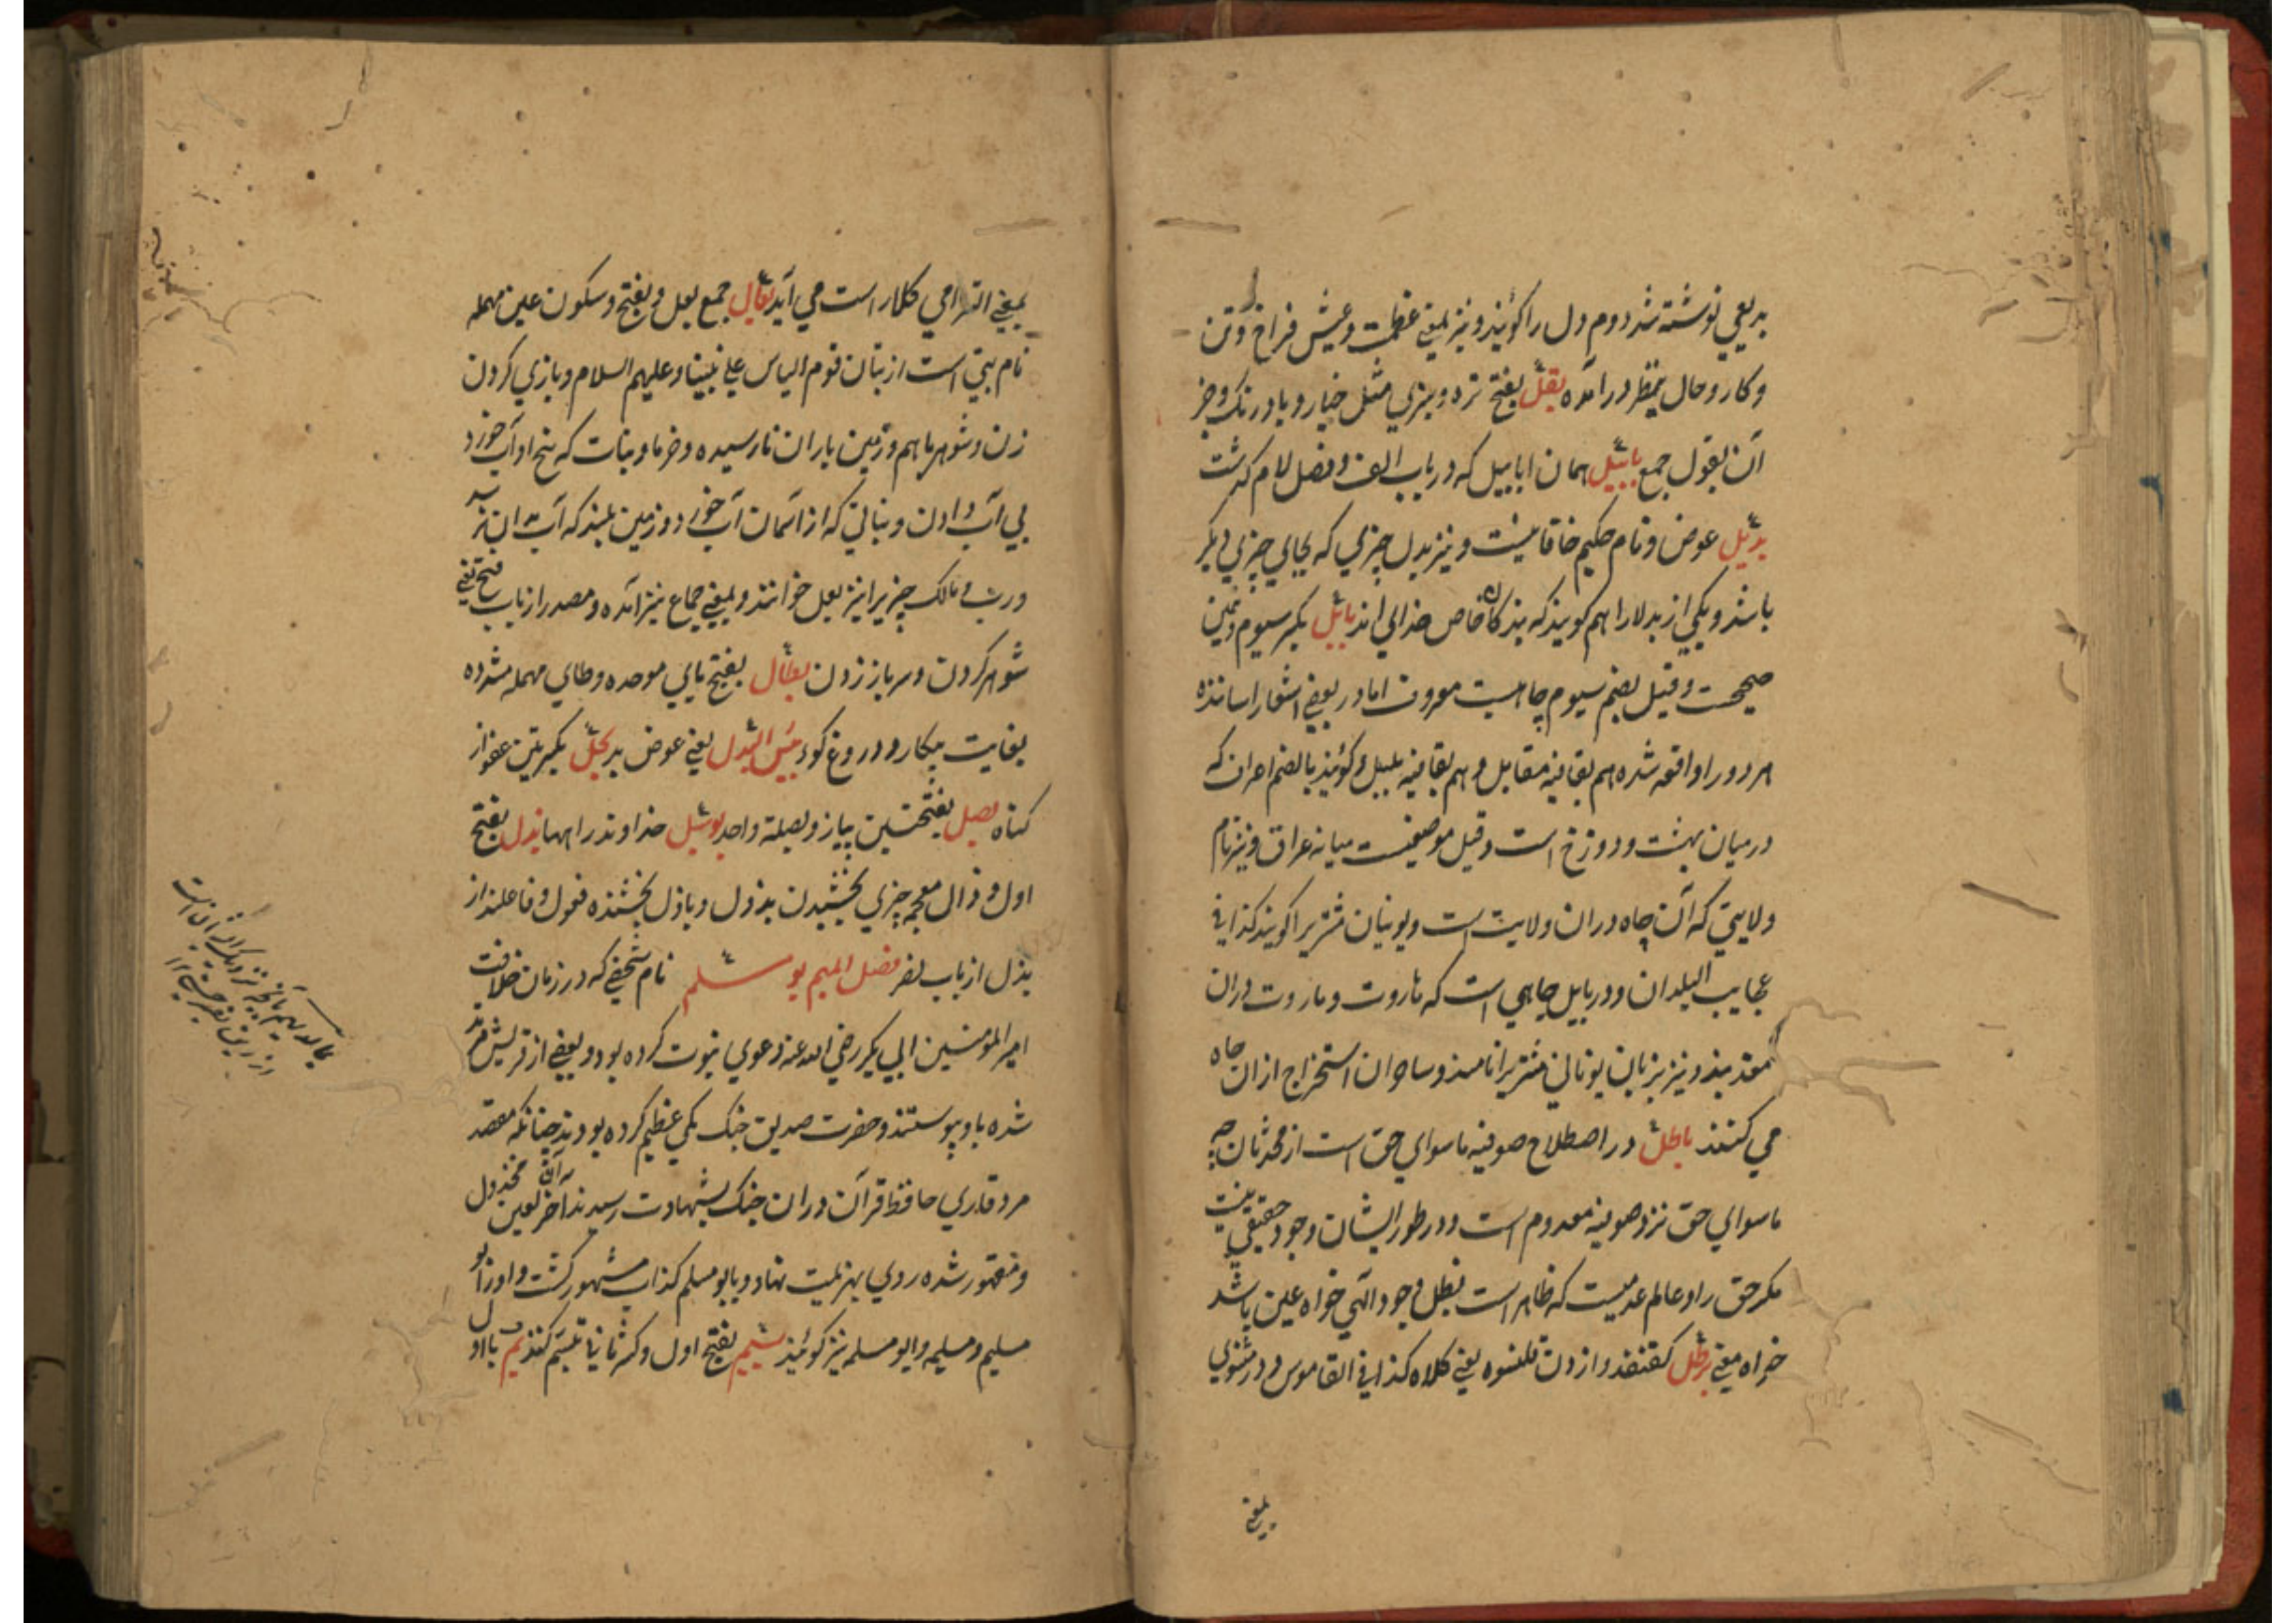 بدیعی نوشته شد دوم دل را کویند و نیز بمعنی عظمت و عیش فراخ و تن
و کار و حال بنظر درآمده بقل بفتح تره و سبزي مثل خیار و بادرنک و جز
آن بقول جمع بابیل همان ابابیل که در باب الف و فصل لام کذشت
بدیل عوض و نام حکیم خاقانیست و نیز بدل چیزي که بجاي چیزي دیکر
باشد و یکي از بدلا را هم کویند که بندکان خاص خداي اند بابل بکسر سیوم و همین
صحیح است و قیل بضم سیوم چاهیست معروف اما در بعضی اشعار اساتذه
هر دو را واقعه شده هم بقافیه مقابل و هم بقافیه بلبل و کویند بالضم اعراف که
درمیان بهشت و دوزخ است و قیل موضعیست میانه عراق و نیز نام
ولایتي که آن چاه دران ولایت است و یونیان مشتریرا کویند کذا في
عجایب البلدان و در بابل چاهي است که هاروت و ماروت دران
مقیدند و نیز بزبان یوناني مشتریرا نامند و ساحران استخراج ازان چاه
مي کنند باطل در اصطلاح صوفیه ماسواي حق است از محدثان چه
ماسواي حق نزد صوفیه معدوم است و در طور ایشان وجود حقیقي نیست
مکر حق را و عالم عدمیست که ظاهر است بظل وجود الهي خواه عین باشد
خواه معنی برطل کقنفذ و اردن قلنسوه یعنی کلاه کذا في القاموس و در مثنوي
بمعنی
بمعنی التزامي کلار است مي آید بعال جمع بعل و بفتح و سکون عین مهمله
نام بتي است از بتان قوم الیاس علی نبینا و علیهم السلام و بازي کردن
زن و شوهر باهم و زمین باران نارسیده و خرما و نبات که بیخ او آب خورد
بي آب دادن و نباتي که از آسمان آب خورد و زمین بلند که آب بدان نرسد
و رب و مالک چیزیرا نیز بعل خوانند و بمعنی جماع نیز آمده و مصدر از باب فتح یعني
شوهر کردن و سر باز زدن بطال بفتح باي موحده و طاي مهمله مشدده
بغایت بیکار و دروغ کوء بئس البدل یعنی عوض بد بجل بکسرتین عفو از
کناه بصل بفتحتین پیاز و بصلة واحد بوشبل خداوند راهها بذل بفتح
اول و ذال معجمه چیزي بخشیدن بذول و باذل بخشنده فعول و فاعلند از
بذل از باب نصر فصل المیم بو مسلم نام شخصی که در زمان خلافت
امیر المومنین ابي بکر رضي الله عنه دعوي نبوت کرده بود و بعضی از قریش مرتد
شده باو پیوستند و حضرت صدیق جنک بکي عظیم کرده بودند چنانکه هفتصد
مرد قاري حافظ قرآن دران جنک بشهادت رسیدند آخر آن لعین مخذول
و مقهور شده روي بهزیمت نهاد و بابو مسلم کذاب مشهور کشت و او را ابو
مسلیم و مسلیمه و ابو مسلمه نیز کویند بسیم بفتح اول و کسر ثاني تبسم کننده بم بااول